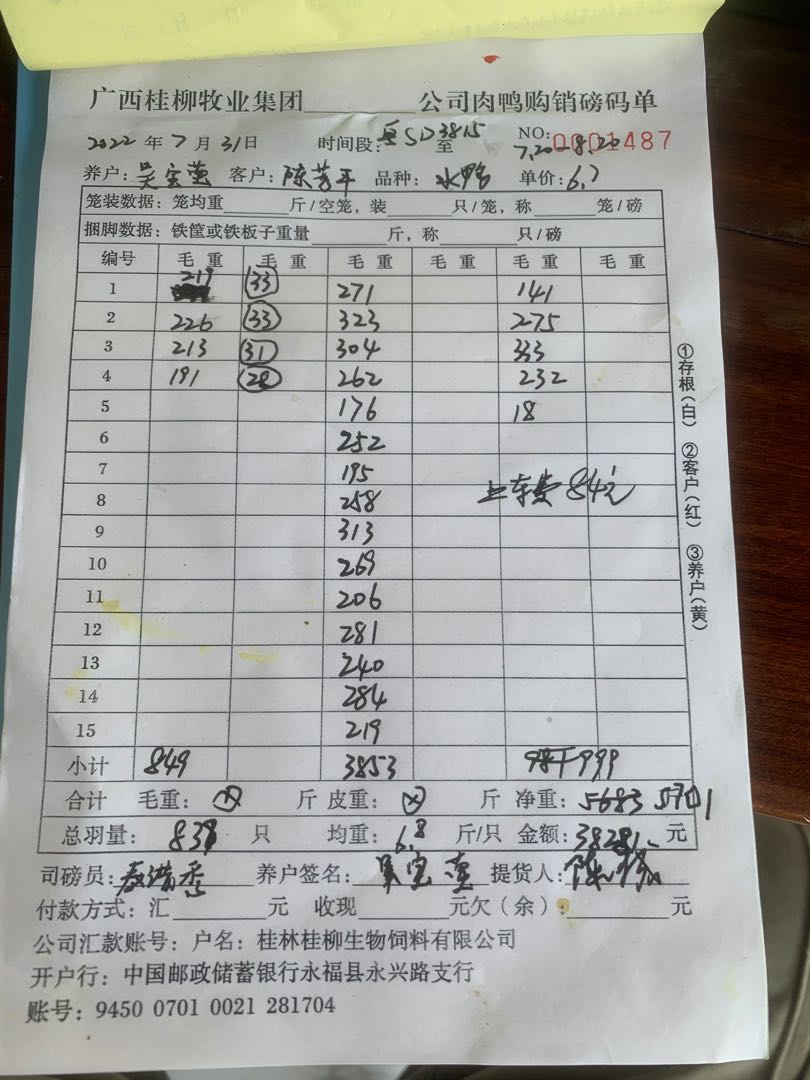 广西桂柳牧业集团________公司肉鸭购销磅码单
2022 年 7 月 31日 时间段: SD3815 至 7.20-8.20 NO: 0001487
养户: 吴宝莹 客户: 陈芳平 品种: 水鸭 单价: 6.7
笼装数据: 笼均重______斤/空笼, 装______只/笼, 称______笼/磅
捆脚数据: 铁筐或铁板子重量______斤, 称______只/磅
编号 毛 重 毛 重 毛 重 毛 重 毛 重 毛 重
1 219 33 271 141
2 226 33 323 275
3 213 31 304 333
4 191 28 262 232
5 176 18
6 252
7 195
8 258 上车费84元
9 313
10 269
11 206
12 281
13 240
14 284
15 219
小计 849 3853 999
合计 毛重: 斤 皮重: 斤 净重: 5683 5701
总羽量: 837 只 均重: 6.8 斤/只 金额: 38281 元
司磅员: 养户签名: 吴宝莹 提货人: 陈
付款方式: 汇______元 收现______元欠(余):______元
公司汇款账号: 户名: 桂林桂柳生物饲料有限公司
开户行: 中国邮政储蓄银行永福县永兴路支行
账号: 9450 0701 0021 281704
①存根(白) ②客户(红) ③养户(黄)